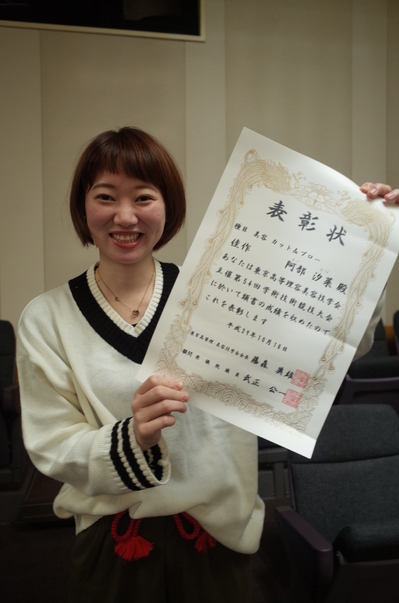 表彰状
種目 美容 カット&ブロー
佳作
阿部 汐華 殿
あなたは東京高等理容美容技学会
主催第54回学術技術競技大会
に於いて頭書の成績を収めたので
これを表彰します
平成29年10月16日
藤森 英雄
武正 公一